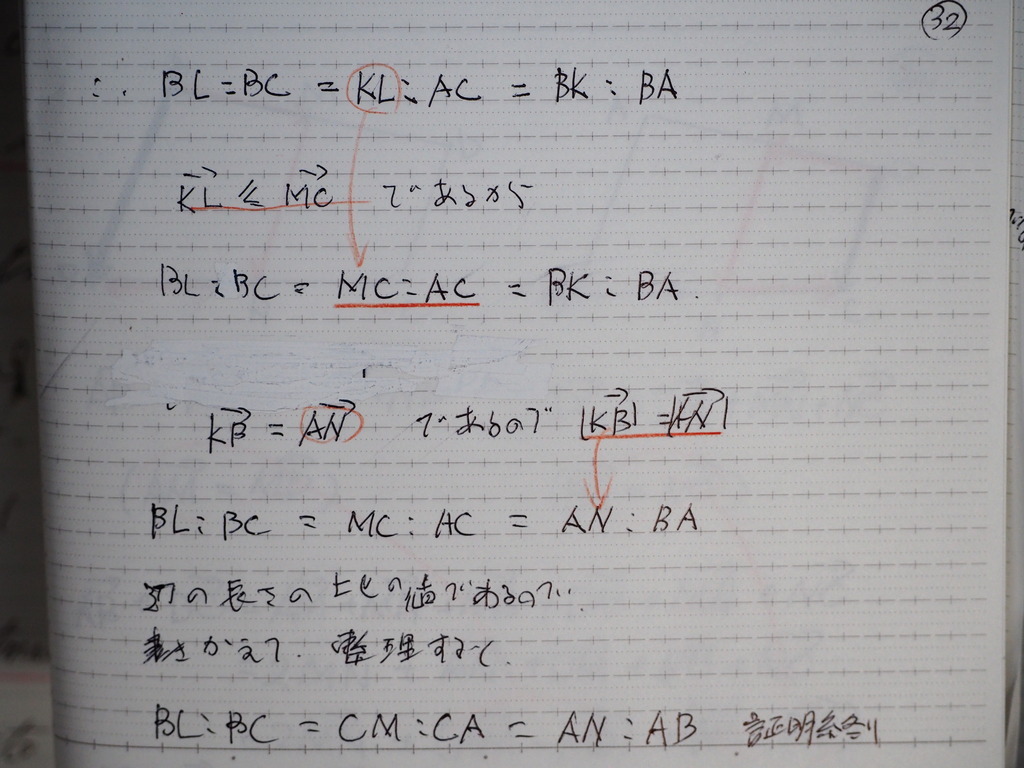 ㉜
∴ BL:BC = KL:AC = BK:BA
KL ≦ MC であるから
BL:BC = MC:AC = BK:BA.
KB = AN であるので |KB| = |AN|
BL:BC = MC:AC = AN:BA
辺の長さの比の値であるので.
書きかえて. 整理すると.
BL:BC = CM:CA = AN:AB 証明終り